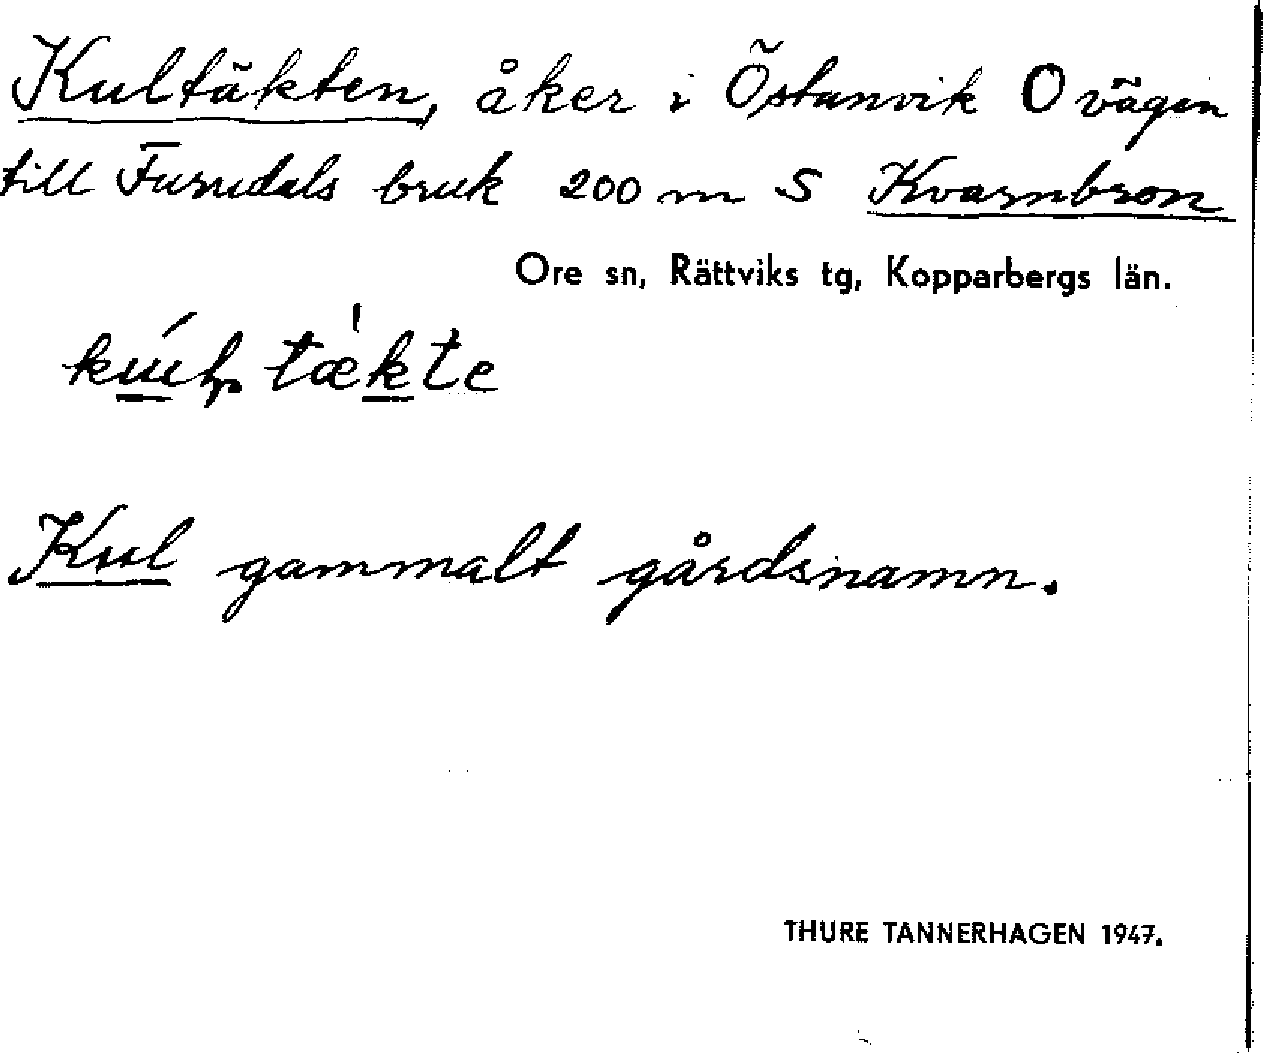 Kultäkten, åker i Östanvik O vägen
till Furudals bruk 200 m S Kvarnbron
Ore sn, Rättviks tg, Kopparbergs län.
tækte
Kul gammalt gårdsnamn.
THURE TANNERHAGEN 1947.